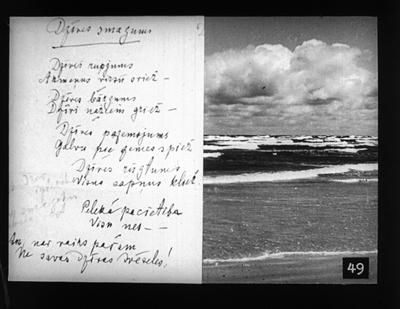 Dzīves smagums
Dzīves rupjums
Akmeņus visus svież —
Dzīves bargums
Dzīvi nažiem griež —
Dzīves pazemojums
Galvu pie zemes spiež
Dzīves rūgtums
Visus sapņus kliež.
Pelēkā pacietība
Visu nes —
nav vairs pašam
Ne savas dzīves dvēseles!
49